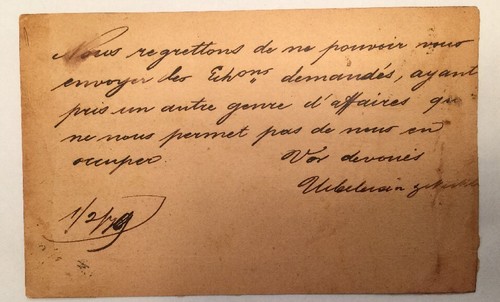 Nous regrettons de ne pouvoir vous
envoyer les Echons demandés, ayant
pris un autre genre d'affaires qui
ne nous permet pas de nous en
occuper
Vos devoués
1/2/79